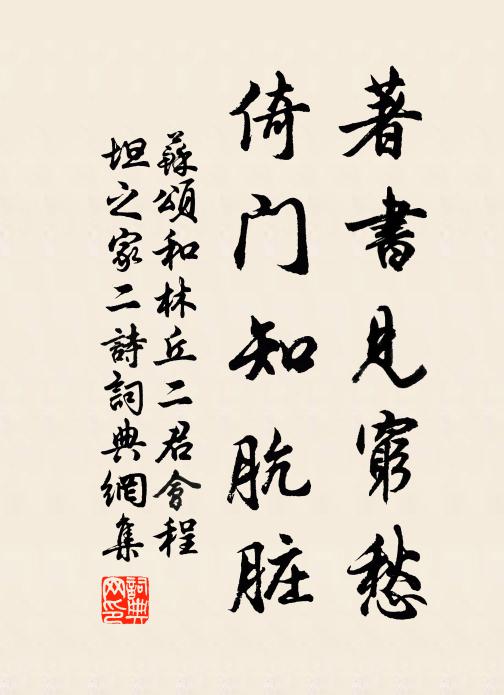 著書見窮愁
倚门知肮脏
蘇頌和林丘二君會程
坦之家二詩詞典網集
詞典网印